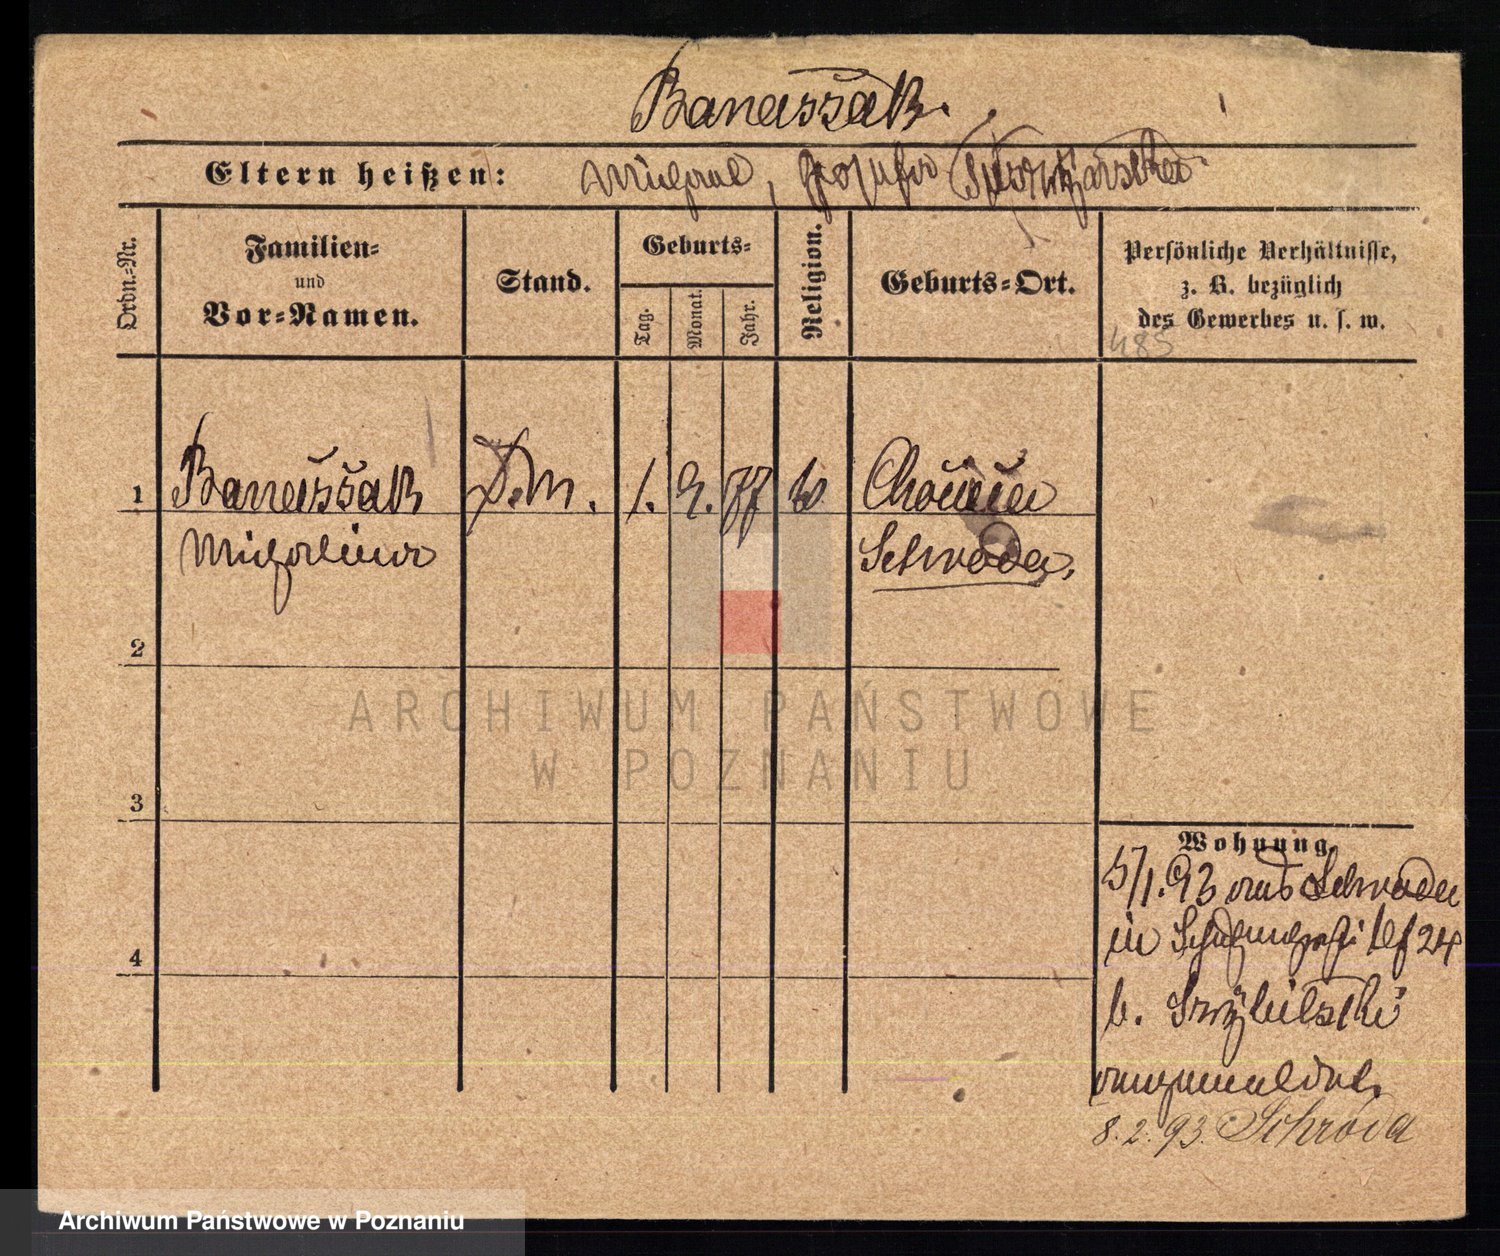 Banaššak.
Eltern heißen: Michael, Josefa
Ordn.-Nr.
Familien-
und
Vor-Namen.
Stand.
Geburts-
Tag.
Monat.
Jahr.
Religion.
Geburts-Ort.
Persönliche Verhältnisse,
z. B. bezüglich
des Gewerbes u. s. w.
485
1 Banaššak D.M. 1. 9. 77 k
Michalina Schroda,
2
3
4
Wohnung.
5/1.93 aus Schroda
in 24
b.
angemeldet.
8.2.93. Schroda
ARCHIWUM PAŃSTWOWE
W POZNANIU
Archiwum Państwowe w Poznaniu